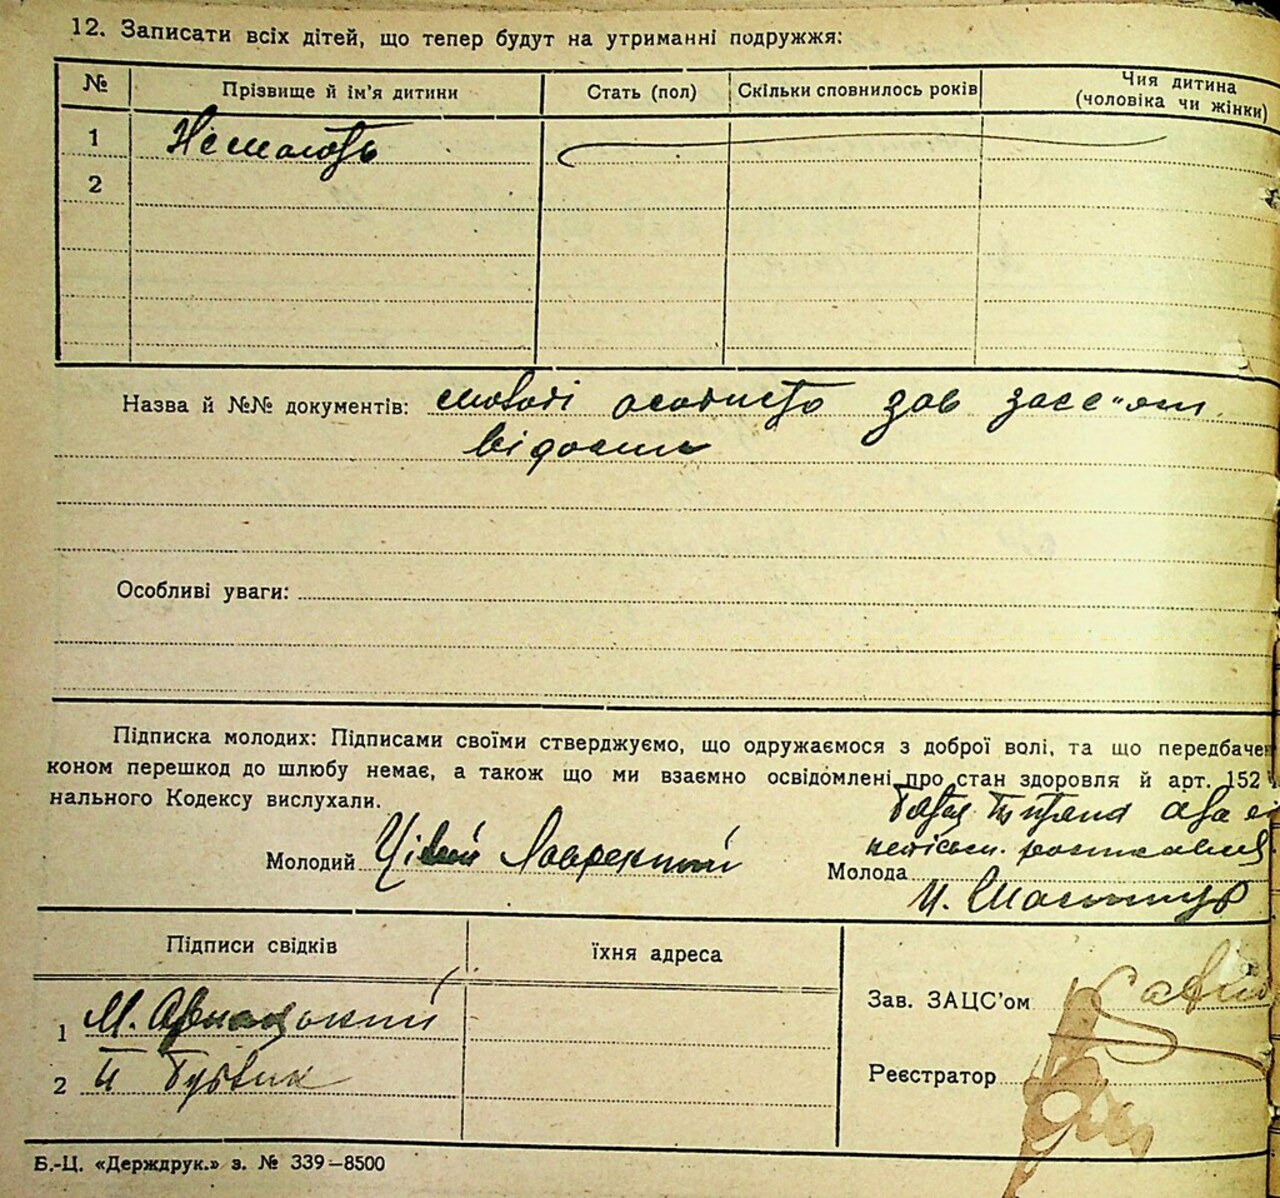 12. Записати всіх дітей, що тепер будут на утриманні подружжя:
№ Прізвище й ім'я дитини Стать (пол) Скільки сповнилось років Чия дитина (чоловіка чи жінки)
1 Немають
2
Назва й №№ документів: молоді особисто зав загс"ом
відомі
Особливі уваги:
Підписка молодих: Підписами своїми стверджуємо, що одружаємося з доброї волі, та що передбачен
коном перешкод до шлюбу немає, а також що ми взаємно освідомлені про стан здоровля й арт. 152
нального Кодексу вислухали.
Молодий
Молода
Підписи свідків їхня адреса
Зав. ЗАЦС'ом
1 М.
2
Реєстратор
Б.-Ц. «Держдрук.» з. № 339—8500